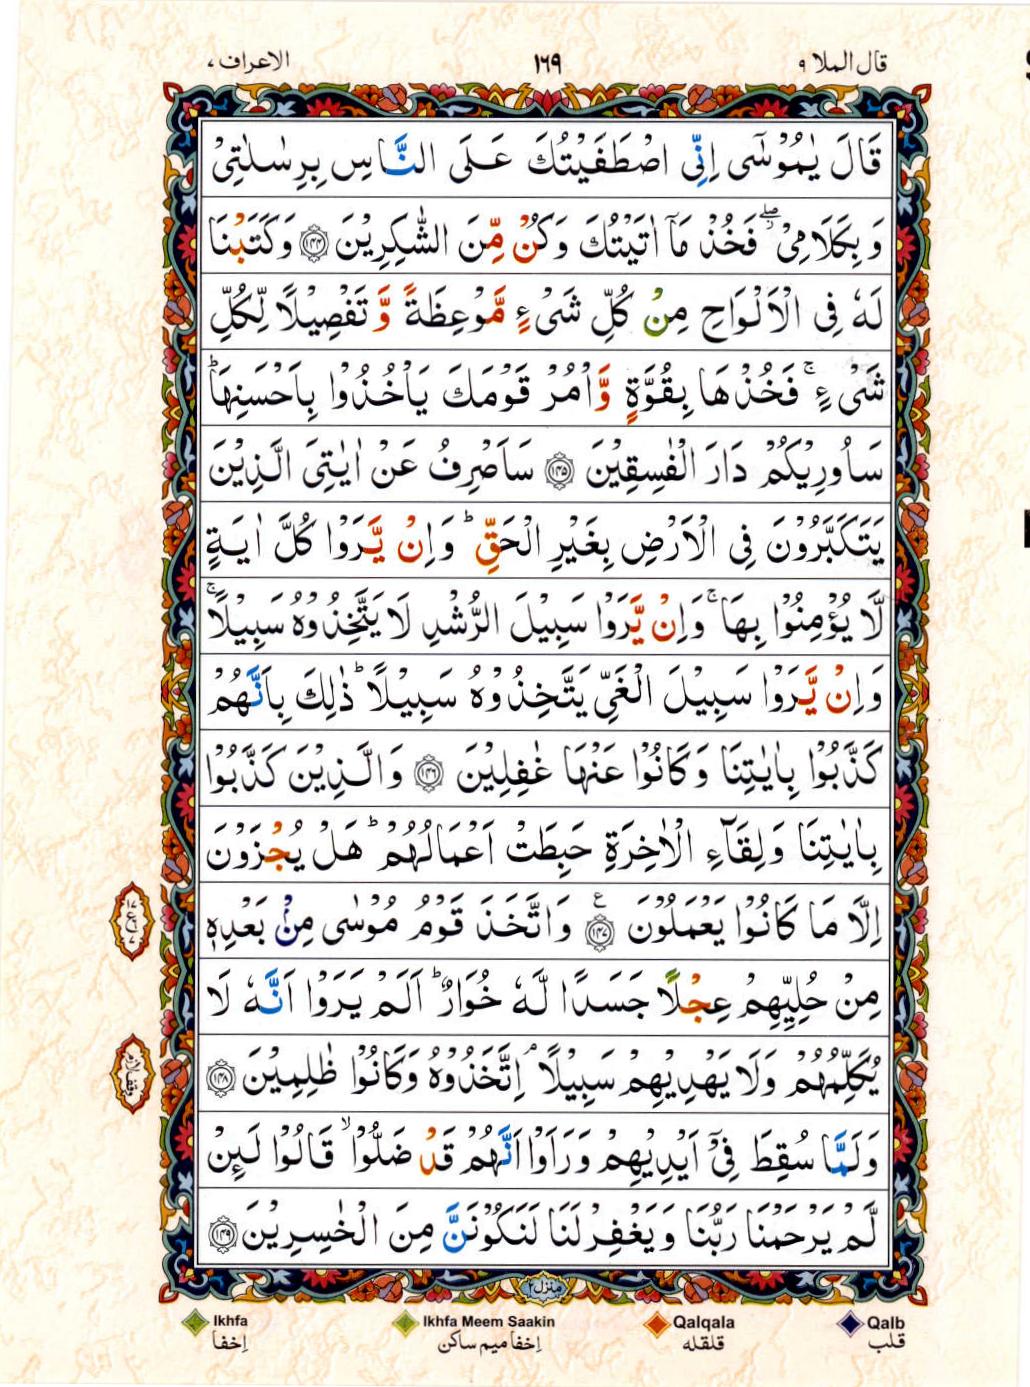 قال الملا ٩
١٦٩
الاعراف ٧
قَالَ يٰمُوْسٰٓى اِنِّى اصْطَفَيْتُكَ عَلَى النَّاسِ بِرِسٰلٰتِىْ
وَ بِكَلَامِىْ ۖ فَخُذْ مَآ اٰتَيْتُكَ وَكُنْ مِّنَ الشّٰكِرِيْنَ ﴿١٤٤﴾ وَكَتَبْنَا
لَهٗ فِى الْاَلْوَاحِ مِنْ كُلِّ شَىْءٍ مَّوْعِظَةً وَّ تَفْصِيْلًا لِّكُلِّ
شَىْءٍ ۚ فَخُذْهَا بِقُوَّةٍ وَّاْمُرْ قَوْمَكَ يَاْخُذُوْا بِاَحْسَنِهَا ؕ
سَاُورِيْكُمْ دَارَ الْفٰسِقِيْنَ ﴿١٤٥﴾ سَاَصْرِفُ عَنْ اٰيٰتِىَ الَّذِيْنَ
يَتَكَبَّرُوْنَ فِى الْاَرْضِ بِغَيْرِ الْحَقِّ ؕ وَاِنْ يَّرَوْا كُلَّ اٰيَةٍ
لَّا يُؤْمِنُوْا بِهَا ۚ وَاِنْ يَّرَوْا سَبِيْلَ الرُّشْدِ لَا يَتَّخِذُوْهُ سَبِيْلًا ۚ
وَاِنْ يَّرَوْا سَبِيْلَ الْغَىِّ يَتَّخِذُوْهُ سَبِيْلًا ؕ ذٰلِكَ بِاَنَّهُمْ
كَذَّبُوْا بِاٰيٰتِنَا وَكَانُوْا عَنْهَا غٰفِلِيْنَ ﴿١٤٦﴾ وَالَّذِيْنَ كَذَّبُوْا
بِاٰيٰتِنَا وَلِقَآءِ الْاٰخِرَةِ حَبِطَتْ اَعْمَالُهُمْ ؕ هَلْ يُجْزَوْنَ
اِلَّا مَا كَانُوْا يَعْمَلُوْنَ ﴿١٤٧﴾ ع وَاتَّخَذَ قَوْمُ مُوْسٰى مِنْۢ بَعْدِهٖ
مِنْ حُلِيِّهِمْ عِجْلًا جَسَدًا لَّهٗ خُوَارٌ ؕ اَلَمْ يَرَوْا اَنَّهٗ لَا
يُكَلِّمُهُمْ وَلَا يَهْدِيْهِمْ سَبِيْلًا ۘ اِتَّخَذُوْهُ وَكَانُوْا ظٰلِمِيْنَ ﴿١٤٨﴾
وَلَمَّا سُقِطَ فِىْٓ اَيْدِيْهِمْ وَرَاَوْا اَنَّهُمْ قَدْ ضَلُّوْا ۙ قَالُوْا لَئِنْ
لَّمْ يَرْحَمْنَا رَبُّنَا وَيَغْفِرْ لَنَا لَنَكُوْنَنَّ مِنَ الْخٰسِرِيْنَ ﴿١٤٩﴾
وقف لازم
منزل ٢
Ikhfa
Ikhfa Meem Saakin
Qalqala
Qalb
اِخفا
اِخفا میم ساکن
قلقله
قلب